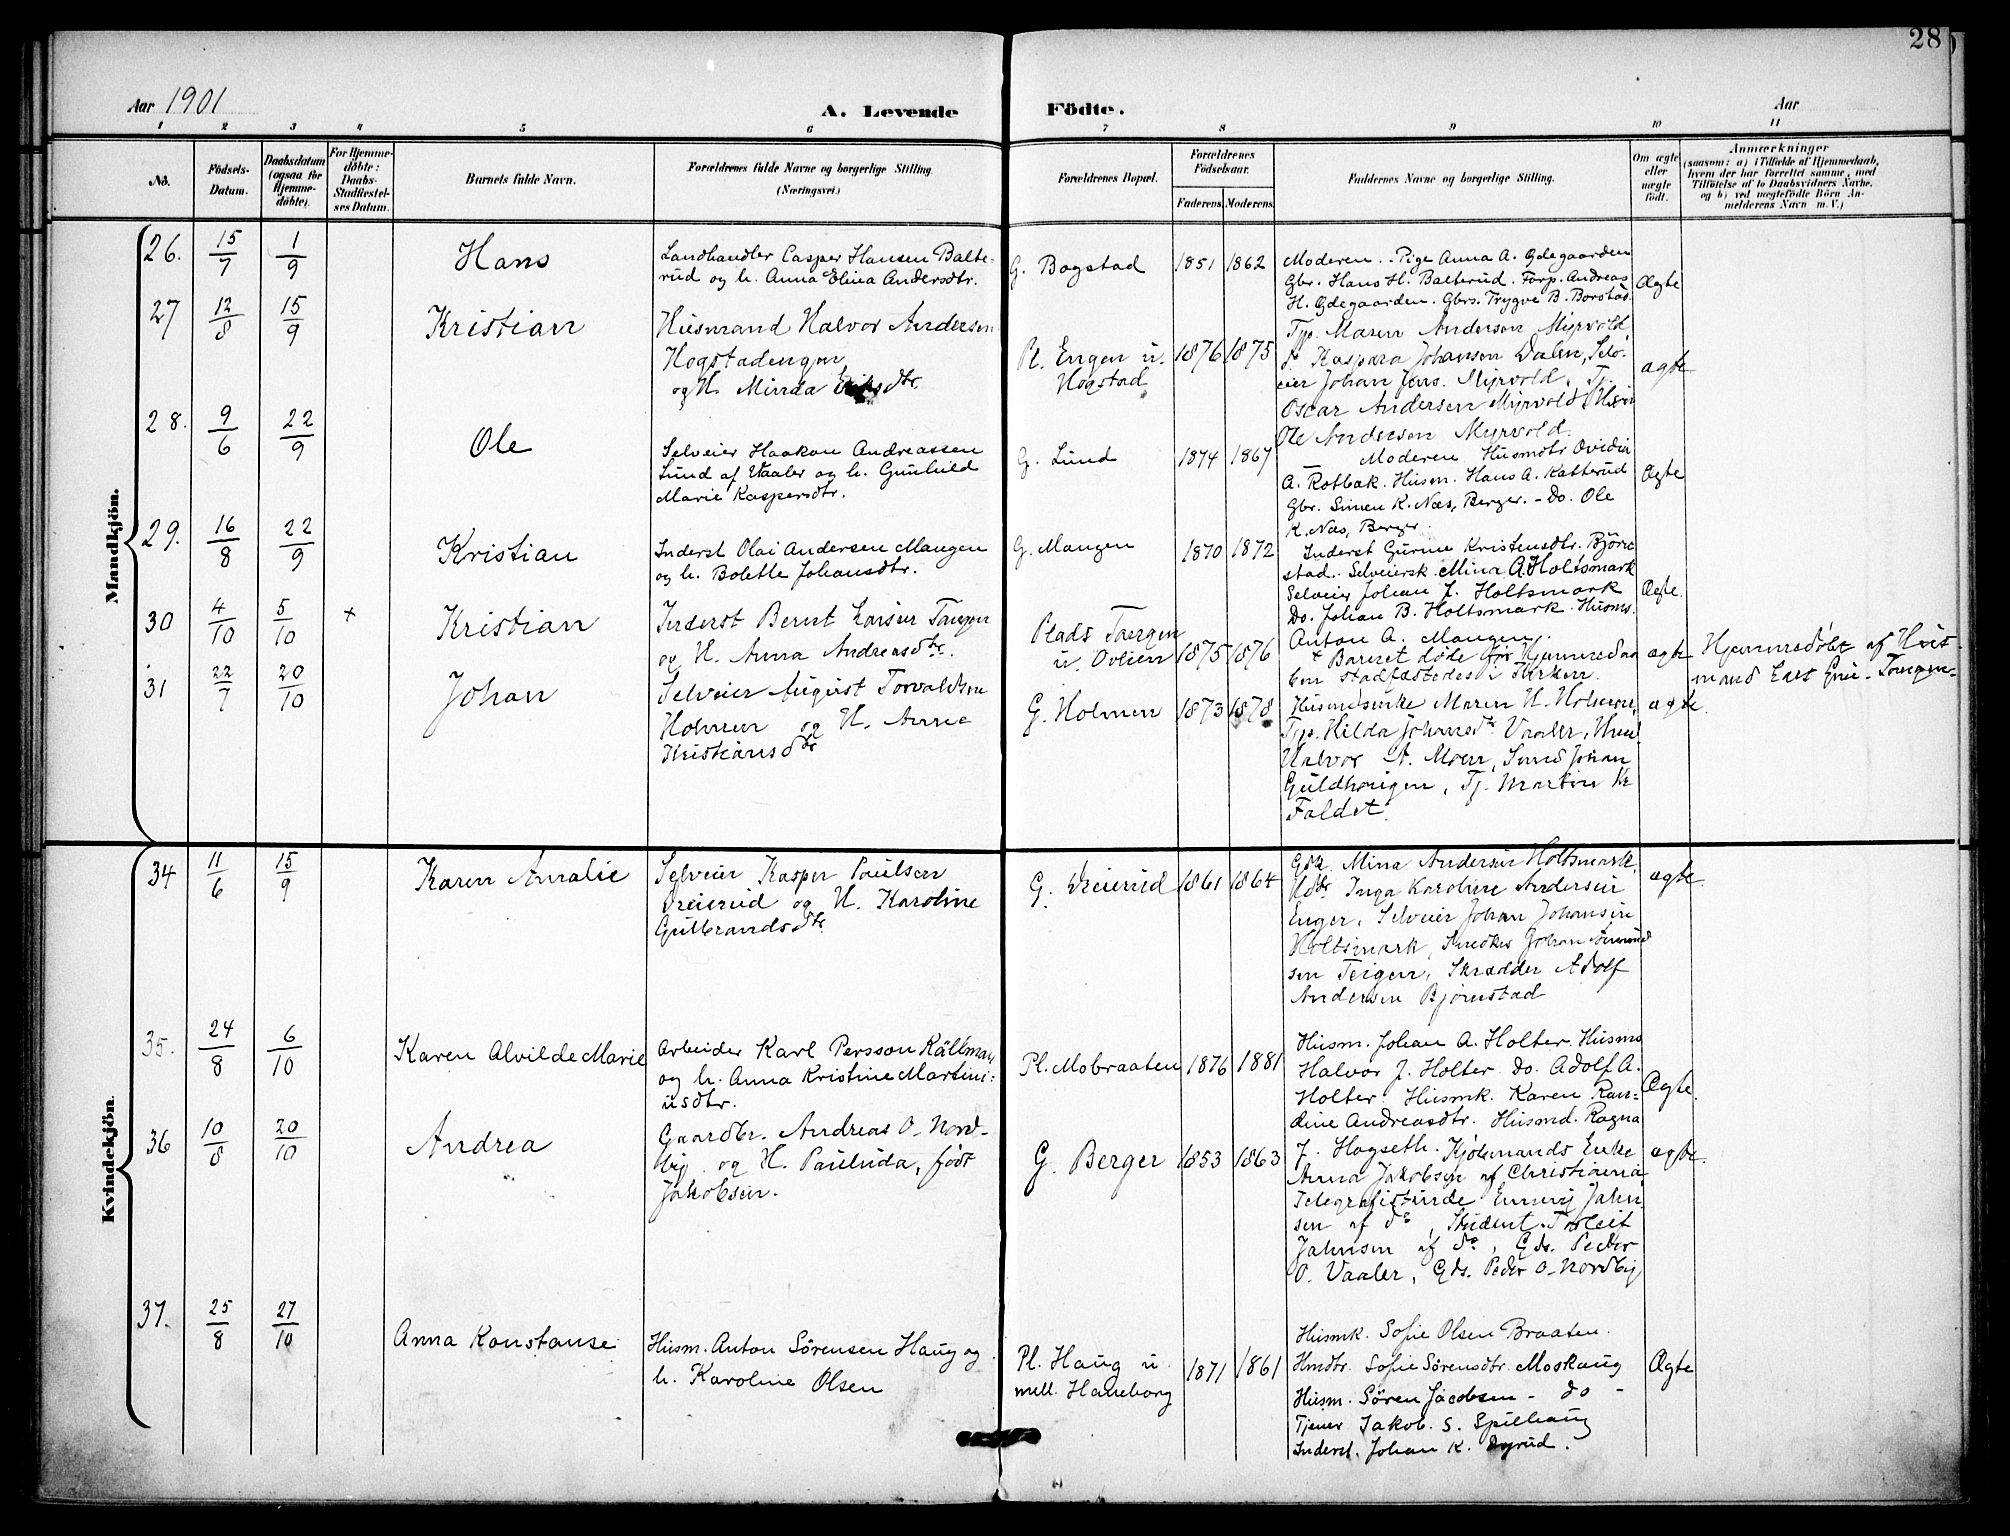 28
Aar 1901
A. Levende Födte.
Aar
1 2 3 4 5 6 7 8 9 10 11
No.
Födsels-Datum.
Daabsdatum (ogsaa for Hjemme-döbte).
For Hjemme-döbte: Daabs-Stadfæstel-ses Datum.
Barnets fulde Navn.
Forældrenes fulde Navne og borgerlige Stilling
(Næringsvei.)
Forældrenes Bopæl.
Forældrenes Födselsaar.
Faderens. Moderens.
Faddernes Navne og borgerlige Stilling.
Om ægte eller uægte födt.
Anmærkninger
(saasom: a) i Tilfælde af Hjemmedaab,
hvem der har forrettet samme, med
Tilföielse af to Daabsvidners Navne.
og b) ved uægtefödte Börn An-
melderens Navn m. V.)
Mandkjön.
26. 15/7 1/9 Hans
Landhandler Casper Hansen Balte-
rud og h. Anna Elina Andersdtr.
G. Bogstad 1851 1862
Moderen. Pige Anna A. Ødegaarden
Gbr. Hans H. Balterud. Forp. Andreas
H. Ødegaarden. Gbrs. Trygve B. Borstad
Ægte
27 12/8 15/9 Kristian
Husmand Halvor Andersen
Hogstadengen
og H. Minda
Pl. Engen u.
Hogstad
1876 1875
Tjp. Maren Andersen Myrvold
Kaspara Johansen Dalen, Selv-
eier Johan Jans. Myrvold, Tj.
Oscar Andersen Myrvold, Husm
Ole Andersen Myrvold.
ægte
28. 9/6 22/9 Ole
Selveier Haakon Andreassen
Lund af Vaaler og h. Gunhild
Marie Kaspersdtr.
G. Lund 1874 1867
Moderen Husmdtr Ovidia
A. Rotbak. Husm. Hans A. Katterud
Gbr. Simen K. Næs, Berger. - Do. Ole
K. Næs, Berger.
Ægte
29. 16/8 22/9 Kristian
Inderst Olai Andersen Mangen
og h. Bolette Johansdtr.
G. Mangen 1870 1872
Inderst Gurine Kristensdtr. Björn
stad. Selveiersk. Mina A. Holtsmark
Selveier Johan J. Holtsmark
Do. Johan B. Holtsmark. Husms.
Anton A. Mangen.
Ægte.
30 4/10 5/10 + Kristian
Inderst Bernt Larsen Tangen
og H. Anna Andreasdtr.
Plads Tangen
u. Ovlien
1875 1876
+ Barnet døde før Hjemmedaa
ben stadfæstedes i Kirken.
ægte
Hjemmedøbt af Hus-
mand Lars Tangen
31 22/7 20/10 Johan
Selveier August Torvaldsen
Holmen og H. Anne
Kristiansdtr
G. Holmen 1873 1878
Husmdsenke Maren H. Holmen,
Tjp. Hilda Johansdtr Vaaler,
Halvor A. Moen, Johan
Guldhougen, Tj. Martin
Faldet.
ægte.
Kvindekjön.
34 11/6 15/9 Karen Amalie
Selveier Kasper Paulsen
Dreierud og H. Karoline
Gulbrandsdtr
G. Dreierud 1861 1864
Mina Andersen Holtsmark
Inga Karoline Andersen
Enger, Selveier Johan Johansen
Holtsmark, Snedker Johan
sen Teigen, Skrædder Adolf
Andersen Bjørnstad
ægte.
35. 24/8 6/10 Karen Alvilde Marie
Arbeider Karl Persson Källman
og h. Anna Kristine Martini-
usdtr.
Pl. Mobraaten 1876 1881
Husm. Johan A. Holter. Husms
Halvor J. Holter. Do. Adolf A.
Holter. Husmk. Karen Ran-
dine Andreasdtr. Husmd. Ragna
J. Hogseth.
Ægte.
36 10/8 20/10 Andrea
Gaardbr. Andreas O. Nord-
by og H. Paulnida, født
Jakobsen.
G. Berger 1853 1863
Kjøbmands Enke
Anna Jakobsen af Christiania
Telegrafistinde Emmy Jahn
sen af do, Student Torleif
Jahnsen af do, Gds. Peder
O. Vaaler, Gds. Peder O. Nordby
ægte.
37. 25/8 27/10 Anna Konstanse
Husm. Anton Sörensen Haug og
h. Karoline Olsen
Pl. Haug u.
mell. Haneborg
1871 1861
Husmk. Sofie Olsen Braaten.
Hmdtr. Sofie Sørensdtr. Moskaug
Husm. Sören Jacobsen - do -
Tjener Jakob. S. Spilhaug
Inderst. Johan K. Dyrud.
Ægte